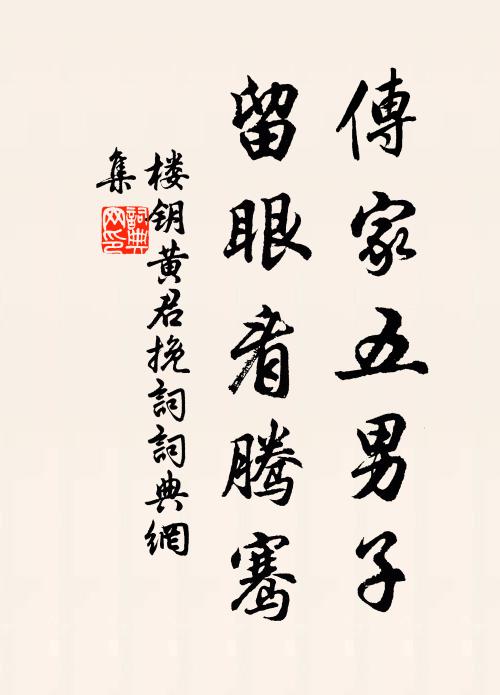 傳家五男子
留眼看騰騫
楼钥黄君挽詞詞典網
集
詞典网印